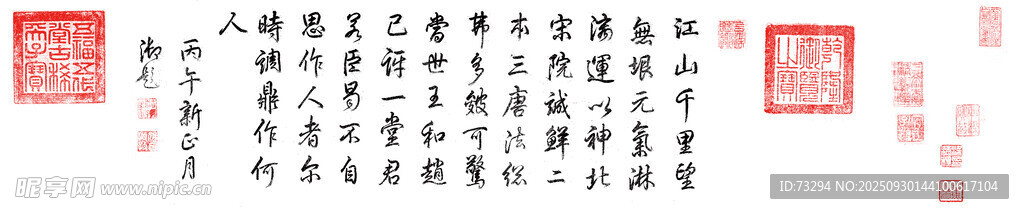 乾隆
御覽
之寶
江山千里望
無垠元氣淋
漓運以神北
宋院誠鮮二
本三唐法総
弗多皴可驚
當世王和趙
已訝一堂君
若臣曷不自
思作人者尔
時調鼎作何
人
丙午新正月
御題
五福五代
堂古稀
天子寶
昵享网 www.nipic.cn
ID:73294 NO:20250930144100617104